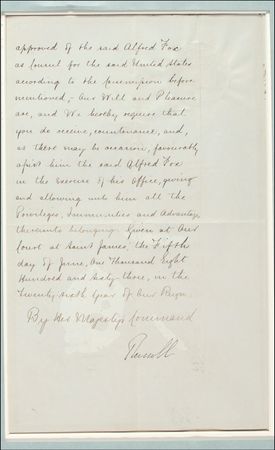 approved of the said Alfred Fox
as Consul for the said United States
according to the Commission before
mentioned,- Our Will and Pleasure
are, and We hereby require that
you do receive, countenance, and,
as there may be occasion, favourably
assist him the said Alfred Fox
in the exercise of his Office, giving
and allowing unto him all the
Privileges, Immunities and Advantages
thereunto belonging. Given at Our
Court at Saint James, the Fifth
day of June, One Thousand Eight
Hundred and Sixty three, in the
Twenty Sixth Year of Our Reign.
By Her Majesty's Command
Russell